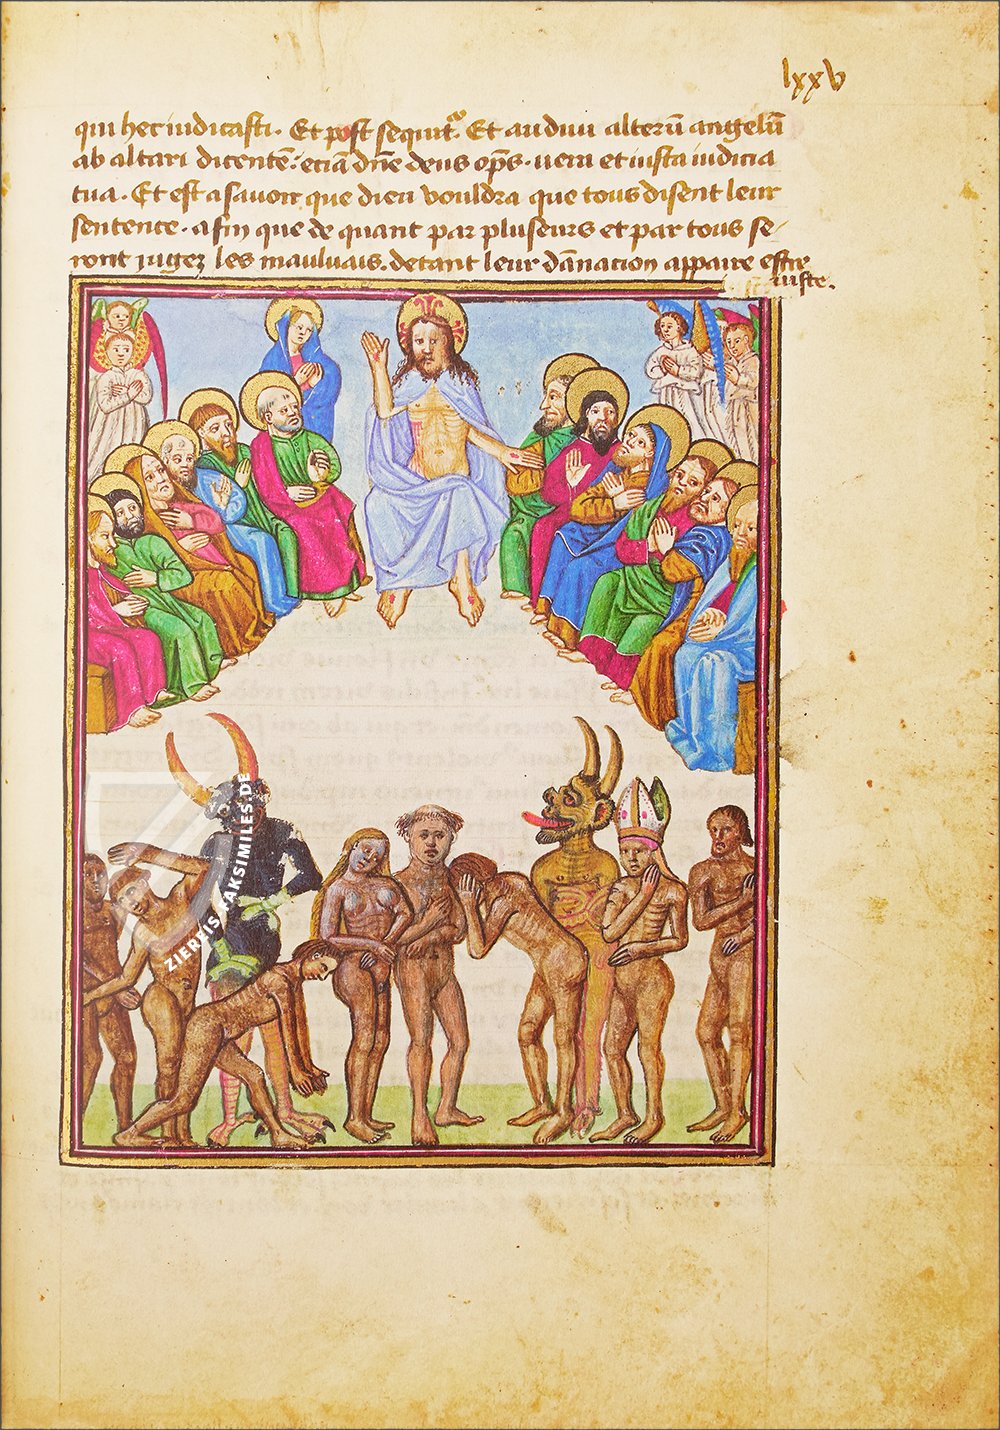 lxxv
qui hec iudicasti. Et post sequit᷑. Et audiui alterū angelū
ab altari dicentē: eciā dn̄e deus op̄s. uera et iusta iudicia
tua. Et est a sauoir que dieu vouldra que tous disent leur
sentence. afin que de quant par pluseurs et par tous se-
ront iugez les mauluais. de tant leur dānacion appaire estre
iuste.
ZIEREIS FAKSIMILES.DE